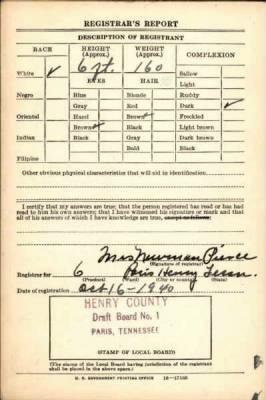 REGISTRAR'S REPORT
DESCRIPTION OF REGISTRANT
RACE HEIGHT (Approx.) WEIGHT (Approx.) COMPLEXION
White ✓ 6 ft. 160 Sallow
EYES HAIR Light
Negro Blue Blonde Ruddy
Gray Red Dark ✓
Oriental Hazel Brown ✓ Freckled
Brown ✓ Black Light brown
Indian Black Gray Dark brown
Bald Black
Filipino
Other obvious physical characteristics that will aid in identification
I certify that my answers are true; that the person registered has read or has had
read to him his own answers; that I have witnessed his signature or mark and that
all of his answers of which I have knowledge are true, except as follows:
Mrs Newman Pierce
(Signature of registrar)
Registrar for 6 Paris Henry Tenn.
(Precinct) (Ward) (City or county) (State)
Date of registration Oct 16 - 1940
HENRY COUNTY
Draft Board No. 1
PARIS, TENNESSEE
STAMP OF LOCAL BOARD)
(The stamp of the Local Board having jurisdiction of the registrant
shall be placed in the above space.)
U. S. GOVERNMENT PRINTING OFFICE 16-17105